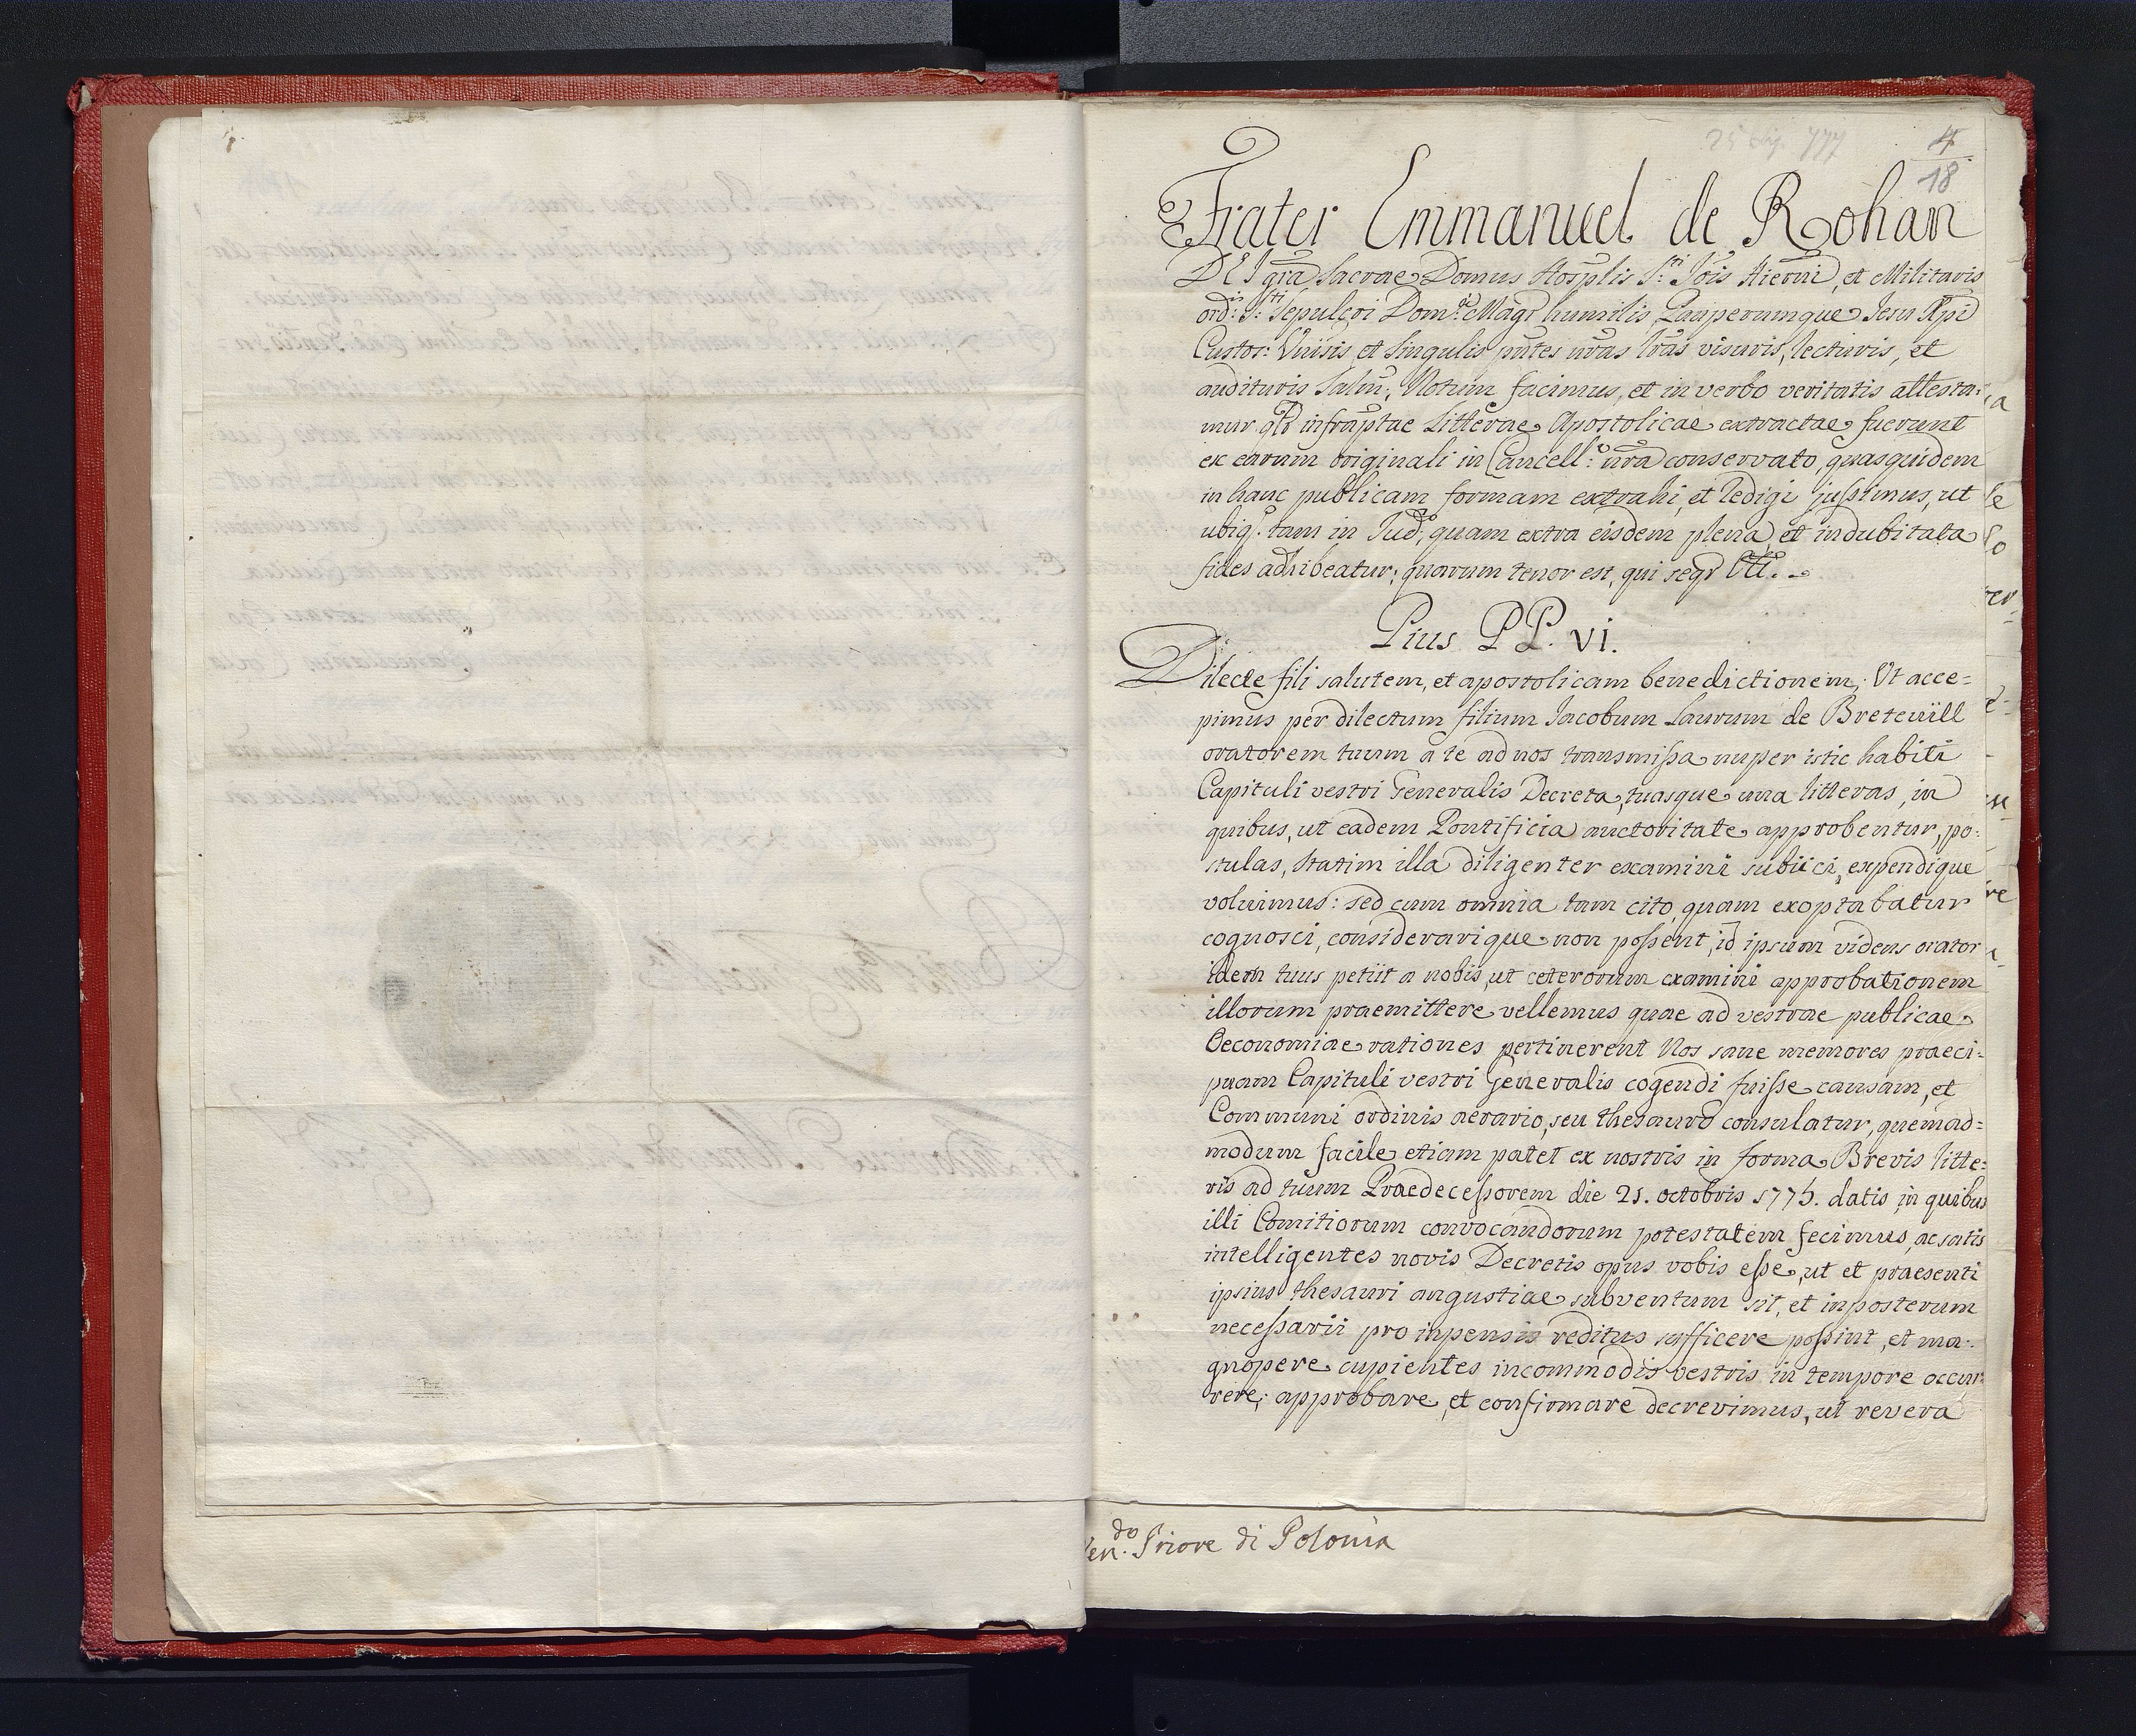 4
18
Frater Emmanuel de Rohan
DEI grã Sacrae Domus Hosplis S.ti Jõis Hierñi, et Militaris
ord:is S:ti Sepulcri Dom:ci Magr humilis, Pauperumque Jesu Xpi
Custos: Vniṽsis et Singulis pñtes ñras lr̃as visuris, lecturis, et
audituris Salũm; Notum facimus, et in verbo veritatis attesta-
mur qd infraptae Litterae Apostolicae extractae fuerunt
ex earum originali in Cancell:a ñra conservato, quasquidem
in hanc publicam formam extrahi, et redigi jussimus, ut
ubiq; tam in Jud:o, quam extra eisdem plena, et indubitata
fides adhibeatur; quarum tenor est, qui seqr
Pius PP. VI.
Dilecte fili salutem, et apostolicam benedictionem; Ut acce=
pimus per dilectum filium Jacobum Laurum de Breteuill
oratorem tuum a te ad nos transmissa nuper istic habiti
Capituli vestri Generalis Decreta, tuasque una litteras, in
quibus, ut eadem Pontificia auctoritate approbentur, po-
stulas, statim illa diligenter examini subiici, expendique
voluimus: sed cum omnia tam cito, quam exoptabatur
cognosci, considerarique non possent, id ipsum videns orator
idem tuus petiit a nobis, ut ceterorum examini approbationem
illorum praemittere vellemus quae ad vestrae publicae
Oeconomiae rationes pertinerent Nos sane memores praeci-
puam Capituli vestri Generalis cogendi fuisse causam, et
Communi ordinis aerario, seu thesauro consulatur, quemad=
modum facile etiam patet ex nostris in forma Brevis litte=
ris ad tuum Praedecessorem die 21. octobris 1775. datis, in quibus
illi Comitiorum convocandorum potestatem fecimus, ac satis
intelligentes novis Decretis opus vobis esse, ut et praesenti
ipsius thesauri angustiae subventum sit, et inposterum
necessarii pro inpensis reditus sufficere possint, et ma-
gnopere cupientes incommodis vestris in tempore occur-
rere; approbare, et confirmare decrevimus, ut revera
Priore di Polonia